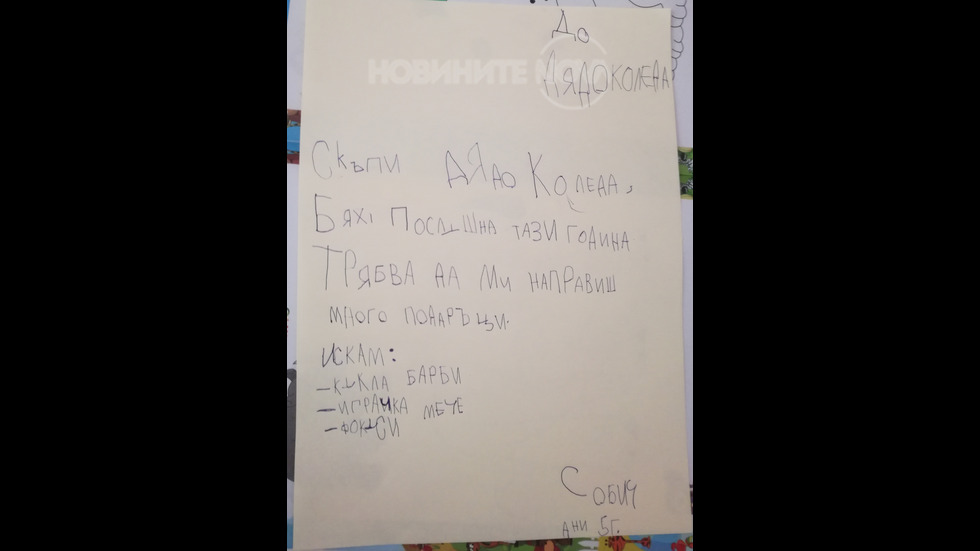 До
ДЯДОКОЛЕДА
НОВИНИТЕ
СКЪПИ ДЯДО КОЛЕДА,
БЯХ ПОСЛУШНА ТАЗИ ГОДИНА
ТРЯБВА ДА МИ НАПРАВИШ
МНОГО ПОДАРЪЦИ.
ИСКАМ:
-КУКЛА БАРБИ
-ИГРАЧКА МЕЧЕ
-ФОКУСИ
С ОБИЧ
АНИ 5Г.